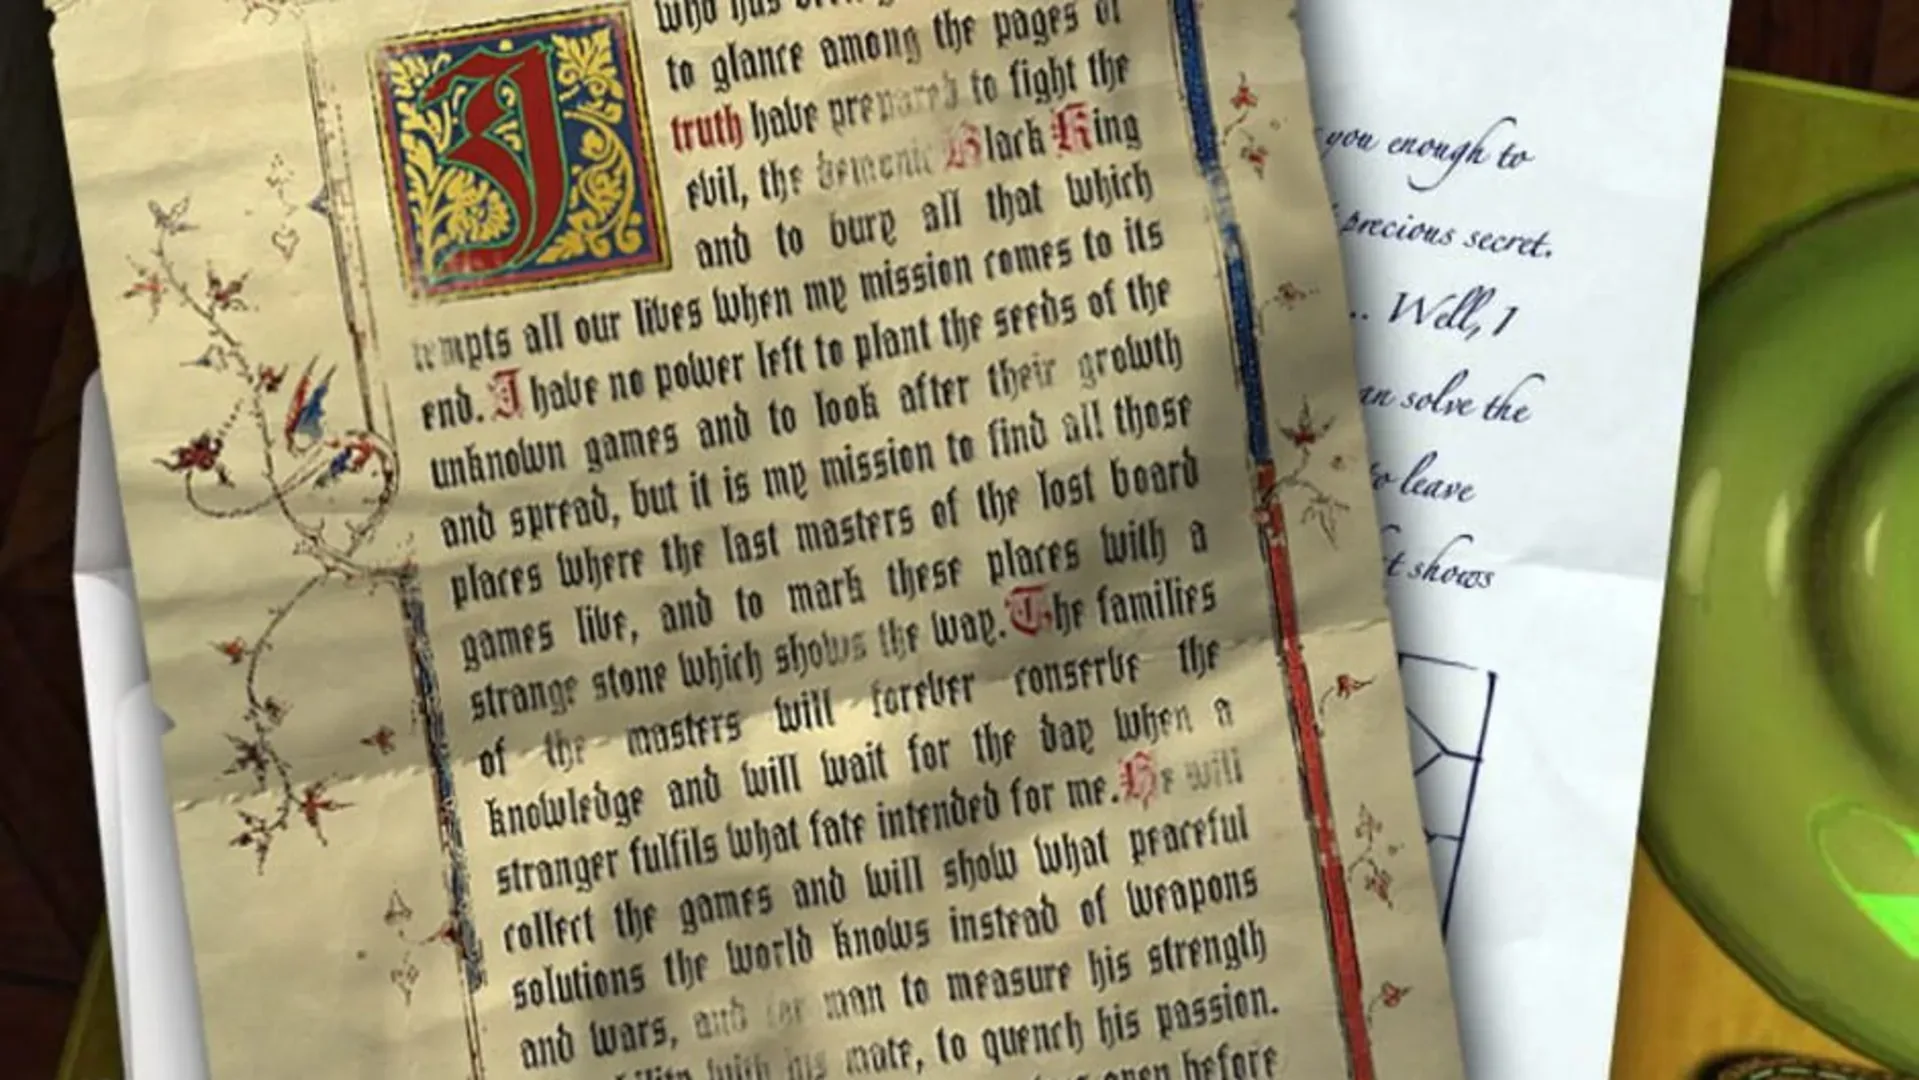 I
who has been
to glance among the pages of
truth have prepared to fight the
evil, the demonic Black King
and to bury all that which
tempts all our lives when my mission comes to its
end. I have no power left to plant the seeds of the
unknown games and to look after their growth
and spread, but it is my mission to find all those
places where the last masters of the lost board
games live, and to mark these places with a
strange stone which shows the way. The families
of the masters will forever conserve the
knowledge and will wait for the day when a
stranger fulfils what fate intended for me. He will
collect the games and will show what peaceful
solutions the world knows instead of weapons
and wars, and for man to measure his strength
with his mate, to quench his passion.
open before
you enough to
precious secret.
.. Well, I
can solve the
to leave
shows